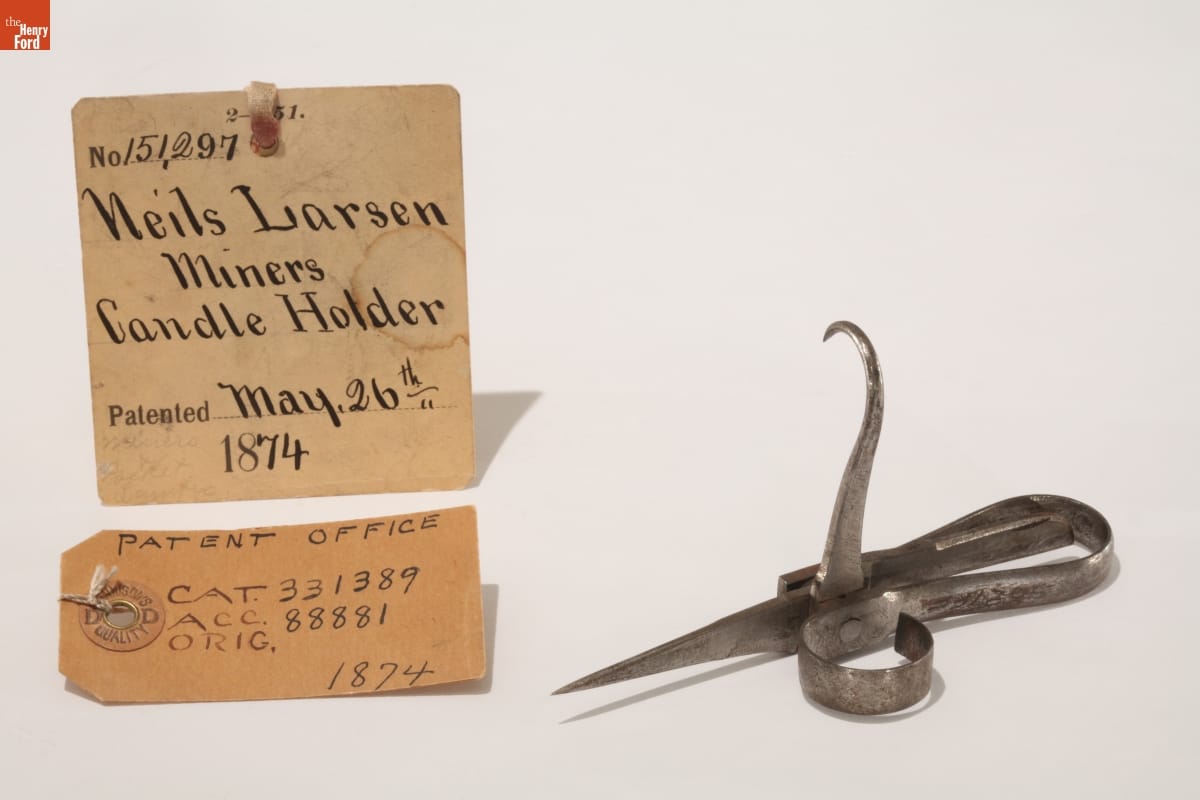 the
Henry
Ford
2- 51.
No. 151,297
Neils Larsen
Miners
Candle Holder
Patented May. 26th
1874
PATENT OFFICE
CAT. 331389
ACC. 88881
ORIG.
1874
DENNISON'S
D D
QUALITY